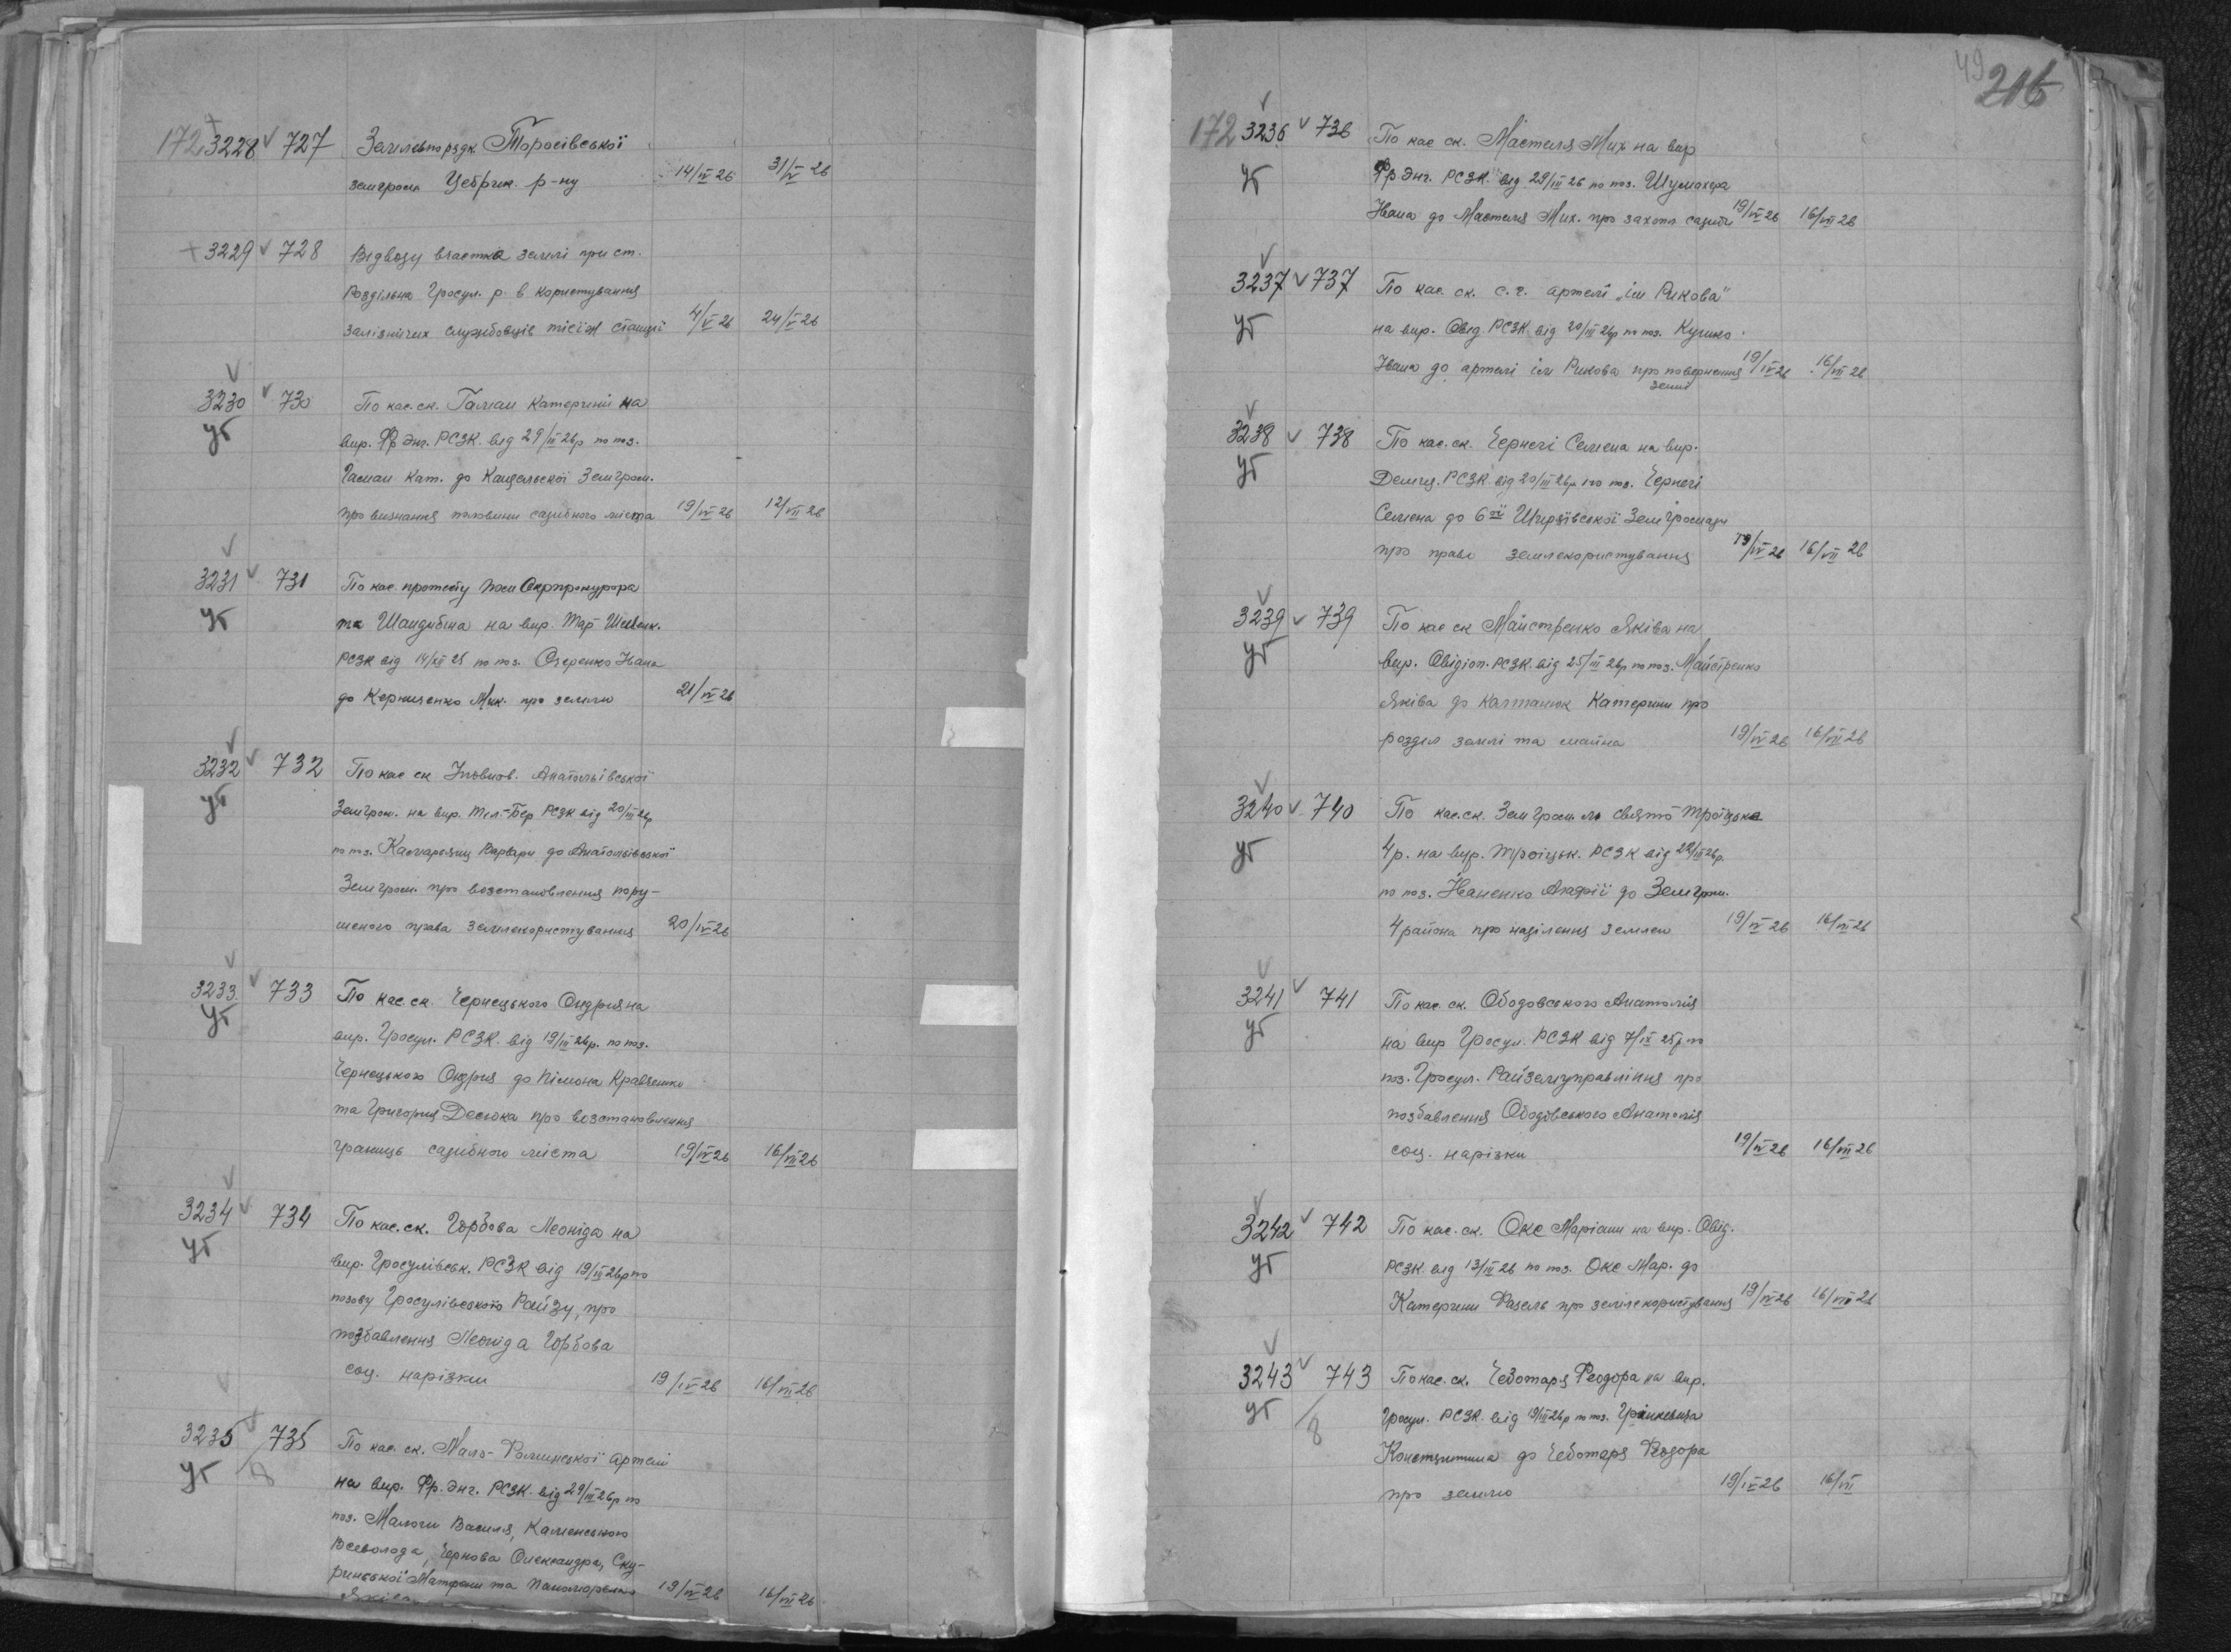 172 3228 727 Землевпоряд. Торосівської
земгром Цебрик. р-ну 14/IV 26 31/V 26
3229 728 Відводу участка землі при ст.
Роздільна Гросул. р. в користування
залізничих службовців тієїж станції 4/V 26 24/V 26
3230 730 По кас. ск. Галман Катерини на
уг
вир. Фр. Энг. РСЗК. від 29/III 26р по поз.
Галман Кат. до КанцельськоїЗемгром.
про визнання половини садибного міста 19/IV 26 12/VII 26
3231 731 По кас. протесту Пом Окрпрокурора
уг
та Шандибіна на вир. Тар-Шевченк.
РСЗК від 14/XII 25 по поз. Озеренко Івана
до Корниенко Мик. про землю 21/IV 26
3232 732 По кас ск Уповнов. Анатольівської
уг
Земгром. на вир. Тил.-Бер РСЗК від 20/III 26р
по поз. Варвари до Анатольівської
Земгром. про возстановлення пору-
шеного права землекористування 20/IV 26
3233 733 По кас. ск. Чернецького Ондрия на
уг
вир. Гросул. РСЗК. від 19/III 26р. по поз.
Чернецького Ондрия до Пімона Кравченко
та Григория Десюка про возстановлення
границь садибного міста 19/IV 26 16/VII 26
3234 734 По кас. ск. Горбова Леоніда на
уг
вир. Гросулівськ. РСЗК від 19/III 26р по
позову Гросулівського Райзу, про
позбавлення Леоніда Горбова
соц. нарізки 19/IV 26 16/VII 26
3235 735 По кас. ск. Мало-Фоминської артелі
уг 8
на вир. Фр. Энг. РСЗК. від 29/III 26р по
поз. Малоги Василя, Каменського
Всеволода, Чернова Олександра, Ску-
ринської Матрени та Паномаренко 19/IV 26 16/VII 26
Яківа
49 216
172 3236 736 По кас ск. Мастиля Мих на вир
уг
Фр. Энг. РСЗК. від 29/III 26 по поз. Шумахера
Івана до Мастиля Мих. про захоп садиби 19/IV 26 16/VII 26
3237 737 По кас. ск. с.г. артелі „ім Рикова"
уг
на вир. Овід. РСЗК від 20/III 26р по поз.
Івана до артелі ім Рикова про повернення 19/IV 26 16/VII 26
землі
3238 738 По кас. ск. Чернегі Семена на вир.
уг
Демид. РСЗК від 20/III 26р. по поз. Чернегі
Семена до 6ої Ширяївської Земгромади
про право землекористування 19/IV 26 16/VII 26
3239 739 По кас ск Майстренко Яківа на
уг
вир. Овідіоп. РСЗК від 25/III 26р по поз. Майстренко
Яківа до Калтанюк Катерини про
розділ землі та майна 19/IV 26 16/VII 26
3240 740 По кас. ск. Земгром. м. Свято Троїцька
уг
4р. на вир. Троїцьк. РСЗК від 22/III 26р.
по поз. Іваненко Агафії до Земгром.
4 района про наділення землею 19/IV 26 16/VII 26
3241 741 По кас. ск. Ободовського Анатолія
уг
на вир Гросул. РСЗК від 7/IX 25р по
поз. Гросул. Райземуправління про
позбавлення Ободовського Анатолія
соц. нарізки 19/IV 26 16/VII 26
3242 742 По кас. ск. Окс Маріани на вир. Овід.
уг
РСЗК від 13/III 26 по поз. Окс Мар. до
Катерини Фазель про землекористування 19/IV 26 16/VII 26
3243 743 По кас. ск. Чеботаря Феодора на вир.
уг 8
Гросул. РСЗК. від 19/III 26р по поз. Гринкевича
Констянтина до Чеботаря Феодора
про землю 19/IV 26 16/VII